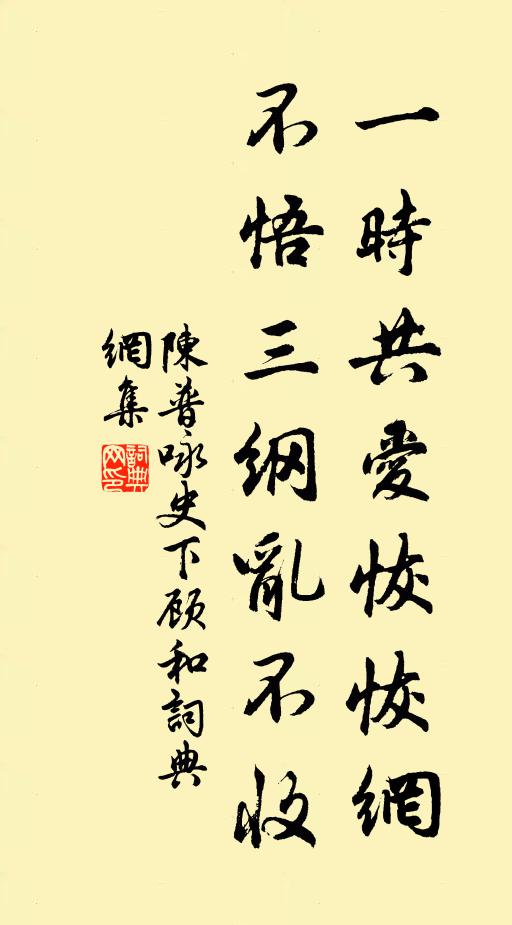 一時共愛恢恢網
不悟三纲亂不收
陳普咏史下顾和詞典
網集
詞典网印